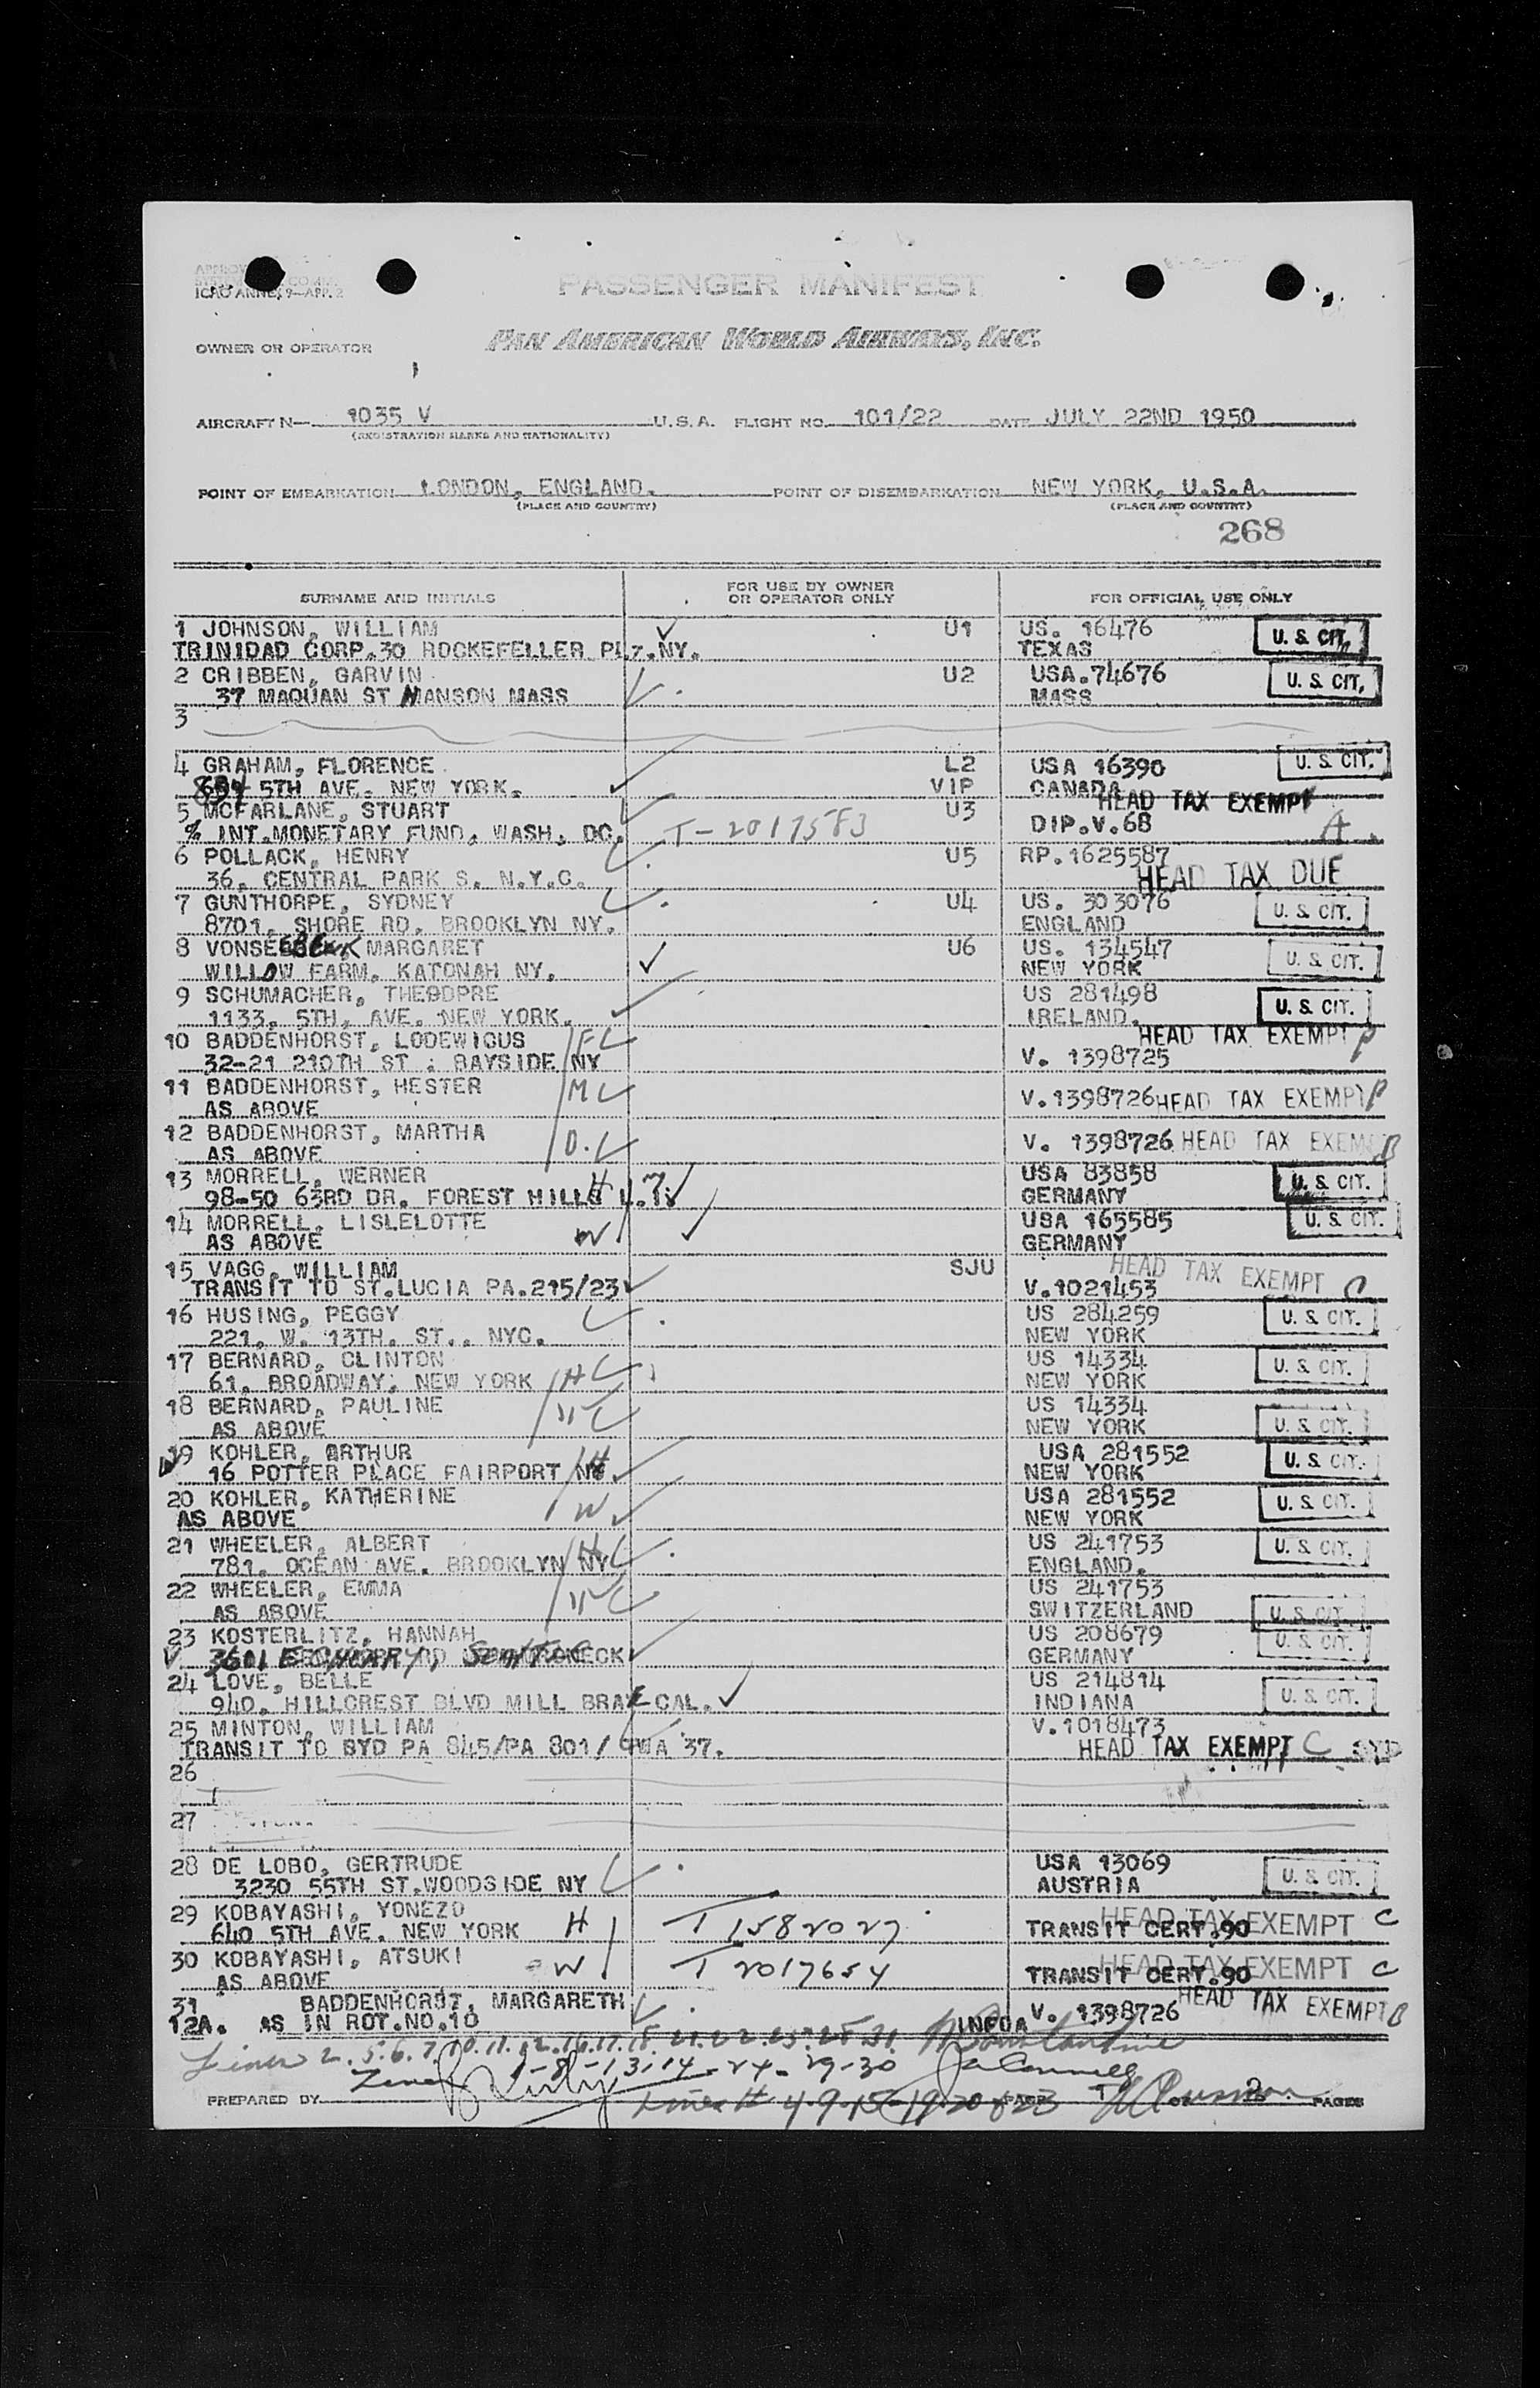 ICAO ANNEX 9—APP. 2
PASSENGER MANIFEST
OWNER OR OPERATOR
PAN AMERICAN WORLD AIRWAYS, INC.
AIRCRAFT N— 1035 V U. S. A. FLIGHT NO. 101/22 DATE JULY 22ND 1950
(REGISTRATION MARKS AND NATIONALITY)
POINT OF EMBARKATION LONDON, ENGLAND. POINT OF DISEMBARKATION NEW YORK, U.S.A.
(PLACE AND COUNTRY) (PLACE AND COUNTRY)
268
SURNAME AND INITIALS FOR USE BY OWNER OR OPERATOR ONLY FOR OFFICIAL USE ONLY
1 JOHNSON, WILLIAM U1 US. 16476 U. S. CIT.
TRINIDAD CORP.30 ROCKEFELLER PLZ.NY. TEXAS
2 CRIBBEN, GARVIN U2 USA.74676 U. S. CIT.
37 MAQUAN ST HANSON MASS MASS
3
4 GRAHAM, FLORENCE L2 USA 16390 U. S. CIT.
834 5TH AVE. NEW YORK. VIP CANADA
5 MCFARLANE, STUART U3 HEAD TAX EXEMPT
% INT.MONETARY FUND, WASH, DC. T-2017583 DIP.V.68 A
6 POLLACK, HENRY U5 RP.1625587
36, CENTRAL PARK S. N.Y.C. HEAD TAX DUE
7 GUNTHORPE, SYDNEY U4 US. 303076 U. S. CIT.
8701, SHORE RD. BROOKLYN NY. ENGLAND
8 MARGARET U6 US. 134547 U. S. CIT.
WILLOW FARM. KATONAH NY. NEW YORK
9 SCHUMACHER, THEODPRE US 281498 U. S. CIT.
1133, 5TH, AVE. NEW YORK. IRELAND.
10 BADDENHORST, LODEWICUS F HEAD TAX EXEMPT
32-21 210TH ST : BAYSIDE NY V. 1398725
11 BADDENHORST, HESTER M V.1398726 HEAD TAX EXEMPT
AS ABOVE
12 BADDENHORST, MARTHA D. V. 1398726 HEAD TAX EXEMPT
AS ABOVE
13 MORRELL, WERNER H USA 83858 U. S. CIT.
98-50 63RD DR. FOREST HILLS GERMANY
14 MORRELL, LISLELOTTE W USA 165585 U. S. CIT.
AS ABOVE GERMANY
15 VAGG, WILLIAM SJU HEAD TAX EXEMPT C
TRANSIT TO ST.LUCIA PA.215/23 V.1021453
16 HUSING, PEGGY US 284259 U. S. CIT.
221, W. 13TH. ST., NYC. NEW YORK
17 BERNARD, CLINTON H US 14334 U. S. CIT.
61, BROADWAY, NEW YORK NEW YORK
18 BERNARD, PAULINE W US 14334 U. S. CIT.
AS ABOVE NEW YORK
19 KOHLER, ARTHUR H USA 281552 U. S. CIT.
16 POTTER PLACE FAIRPORT NY. NEW YORK
20 KOHLER, KATHERINE W USA 281552 U. S. CIT.
AS ABOVE NEW YORK
21 WHEELER, ALBERT H US 241753 U. S. CIT.
781, OCEAN AVE. BROOKLYN NY ENGLAND.
22 WHEELER, EMMA W US 241753
AS ABOVE SWITZERLAND U. S. CIT.
23 KOSTERLITZ, HANNAH US 208679 U. S. CIT.
3601 E CHERRY, GERMANY
24 LOVE, BELLE US 214814 U. S. CIT.
940, HILLCREST BLVD MILL BRAE CAL. INDIANA
25 MINTON, WILLIAM V.1018473
TRANSIT TO SYD PA 845/PA 801/ 37. HEAD TAX EXEMPT C SYD
26
27
28 DE LOBO, GERTRUDE USA 13069 U. S. CIT.
3230 55TH ST.WOODSIDE NY AUSTRIA
29 KOBAYASHI, YONEZO H T 1582027 HEAD TAX EXEMPT C
640 5TH AVE. NEW YORK TRANSIT CERT.90
30 KOBAYASHI, ATSUKI W T 2017654 HEAD TAX EXEMPT C
AS ABOVE TRANSIT CERT.90
31 BADDENHORST, MARGARETH V. 1398726 HEAD TAX EXEMPT B
12A. AS IN ROT.NO.10
Lines 2.5.6.7.10.11.12.16.17.18.21.22.25.28.31.
Lines 1-8-13-14-24-29-30
Lines # 4-9-15-19-20 & 23
PREPARED BY PAGE 1 OF 2 PAGES